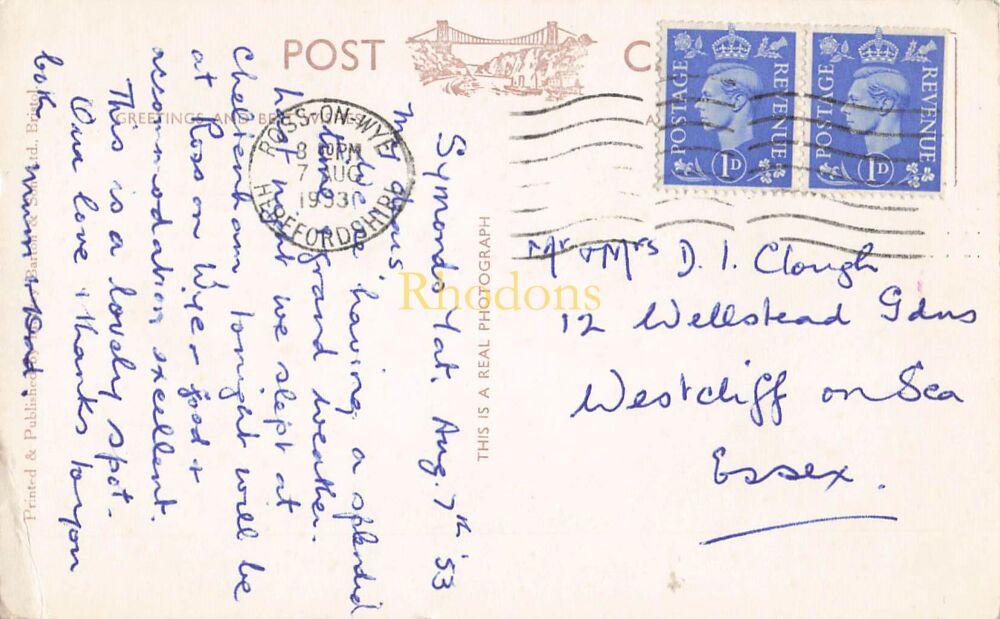 POST
GREETINGS AND BEST WISHES
ROSS-ON-WYE
8 PM
7 AUG
1953
HEREFORDSHIRE
POSTAGE REVENUE
1D
POSTAGE REVENUE
1D
Symonds Yat. Aug. 7th '53
My dears,
We are having a splendid
time & grand weather.
last night we slept at
Cheltenham tonight will be
at Ross on Wye - food &
accommodation excellent.
This is a lovely spot.
Our love & thanks to you
both
Mum & Dad.
Mr & Mrs D. I. Clough
12 Wellstead Gdns
Westcliff on Sea
Essex.
THIS IS A REAL PHOTOGRAPH
Printed & Published by Barton & Son Ltd., Bristol
Rhodons